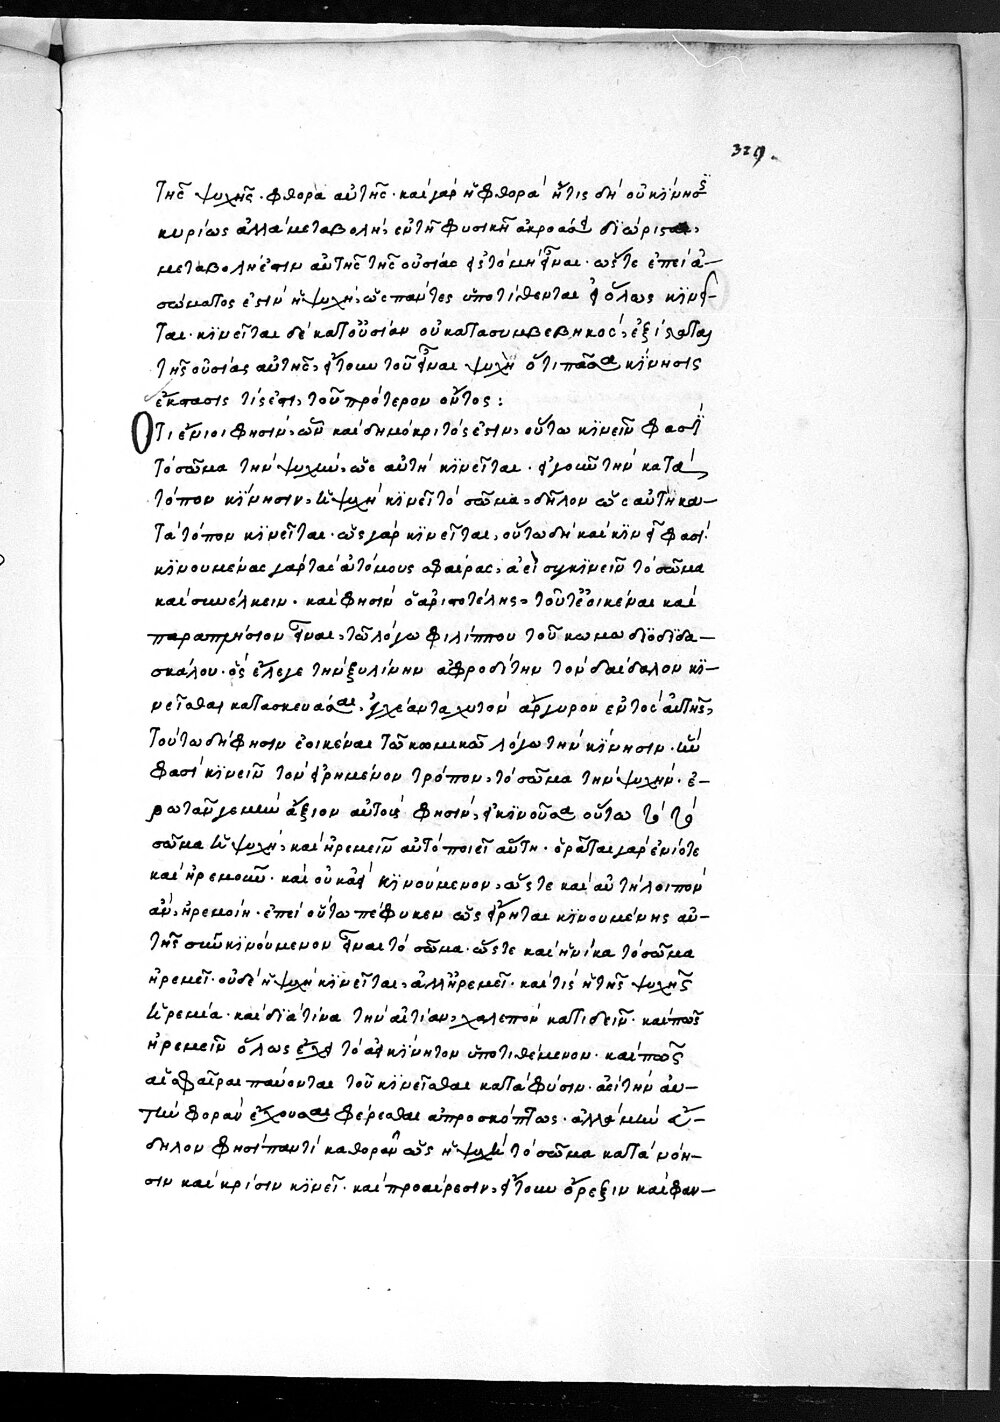 329.
τῆς ψυχῆς· φθορὰ αὐτῆς· καὶ γὰρ ἡ φθορὰ ἥτις δὴ οὐ κίνησις
κυρίως ἀλλὰ μεταβολὴ, ἐν τῆ φυσικῆ ἀκροάσει διώρισται,
μεταβολή ἐστιν αὐτῆς τῆς οὐσίας εἰς τὸ μὴ εἶναι· ὥστε ἐπεὶ ἀ-
σώματος ἐστὶν ἡ ψυχὴ, ὡς πάντες ὑποτίθενται εἰ ὅλως κινεῖ-
ται· κινεῖται δὲ κατ' οὐσίαν οὐ κατασυμβεβηκὸς, ἐξίσταται
τῆς οὐσίας αὐτῆς, ἤτοι τοῦ εἶναι ψυχὴ ὅτι πᾶσα κίνησις
ἔκστασις τίς ἐστι, τοῦ πρότερον ὄντος:
Ὅτι ἔνιοι φησὶν, ὧν καὶ δημόκριτός ἐστιν, οὕτω κινεῖν φασὶ
τὸ σῶμα τὴν ψυχὴν, ὡς αὐτὴ κινεῖται· εἰ γοῦν τὴν κατὰ
τόπον κίνησιν, ἡ ψυχὴ κινεῖ τὸ σῶμα, δῆλον ὡς αὐτὴ κα-
τὰ τόπον κινεῖται· ὡς γὰρ κινεῖται, οὕτω δὴ καὶ κινεῖ φασί·
κινουμένας γὰρ τὰς ἀτόμους σφαίρας, ἀεὶ συγκινεῖν τὸ σῶμα
καὶ συνέλκειν· καὶ φησὶν ὁ ἀριστοτέλης, τοῦτ' ἐοικέναι καὶ
παραπλήσιον εἶναι, τῶ λόγω φιλίππου τοῦ κωμωδιδιδα-
σκάλου· ὃς ἔλεγε τὴν ξυλίνην ἀφροδίτην τὸν δαίδαλον κι-
νεῖσθαι κατασκευάσαι, ἐγχέαντα χυτὸν ἄργυρον ἐντὸς αὐτῆς,
τούτω δὴ φησὶν ἐοικέναι τῶ κωμικῶ λόγω τὴν κίνησιν· ἣν
φασὶ κινεῖν τὸν εἰρημένον τρόπον, τὸ σῶμα τὴν ψυχήν· ἐ-
ρωτᾶν γε μὴν ἄξιον αὐτοὺς φησὶν, εἰ κινοῦσα οὕτω τὸ
σῶμα ἡ ψυχὴ, καὶ ἠρεμεῖν αὐτὸ ποιεῖ αὕτη· ὁρᾶται γὰρ ἐνίοτε
καὶ ἠρεμοῦν· καὶ οὐκ ἀεὶ κινούμενον, ὥστε καὶ αὐτὴ λοιπὸν
ἂν, ἠρεμοίη· ἐπεὶ οὕτω πέφυκεν ὡς εἴρηται κινουμένης αὐ-
τῆς συγκινούμενον εἶναι τὸ σῶμα· ὥστε καὶ ἡνίκα τὸ σῶμα
ἠρεμεῖ· οὐδὲ ἡ ψυχὴ κινεῖται, ἀλλ' ἠρεμεῖ· καὶ τίς ἡ τῆς ψυχῆς
ἠρεμία· καὶ διὰ τίνα τὴν αἰτίαν, χαλεπὸν κατιδεῖν· καὶ πῶς
ἠρεμεῖν ὅλως ἔχει τὸ ἀεικίνητον ὑποτιθέμενον· καὶ πῶς
αἱ σφαῖραι παύονται τοῦ κινεῖσθαι κατὰ φύσιν· ἀεὶ τὴν αὐ-
τὴν φορὰν ἔχουσαι φέρεσθαι ἀπροσκόπτως· ἀλλὰ μὴν εὔ-
δηλον φησὶ παντὶ καθορᾶν ὡς ἡ ψυχὴ τὸ σῶμα κατὰ νόη-
σιν καὶ κρίσιν κινεῖ· καὶ προαίρεσιν, ἤτοι ὄρεξιν καὶ φαν-